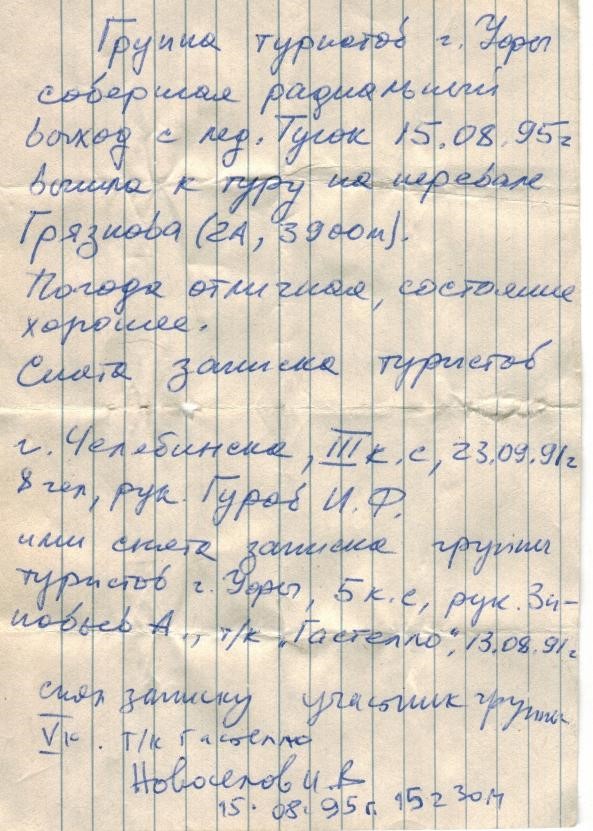 Группа туристов г. Уфы
совершая радиальный
выход с лед. Тугок 15.08.95г
вышла к туру на перевале
Грязнова (2А, 3900м).
Погода отличная, состояние
хорошее.
Снята записка туристов
г. Челябинска, III к.с, 23.09.91г
8 чел, рук. Гуров И. Ф.
ими снята записка группы
туристов г. Уфы, 5 к.с, рук. Зи-
новьев А., т/к „Гастелло", 13.08.91г
снял записку участник группы
V к. т/к Гастелло
Новоселов И.В
15. 08. 95г. 15 г 30м